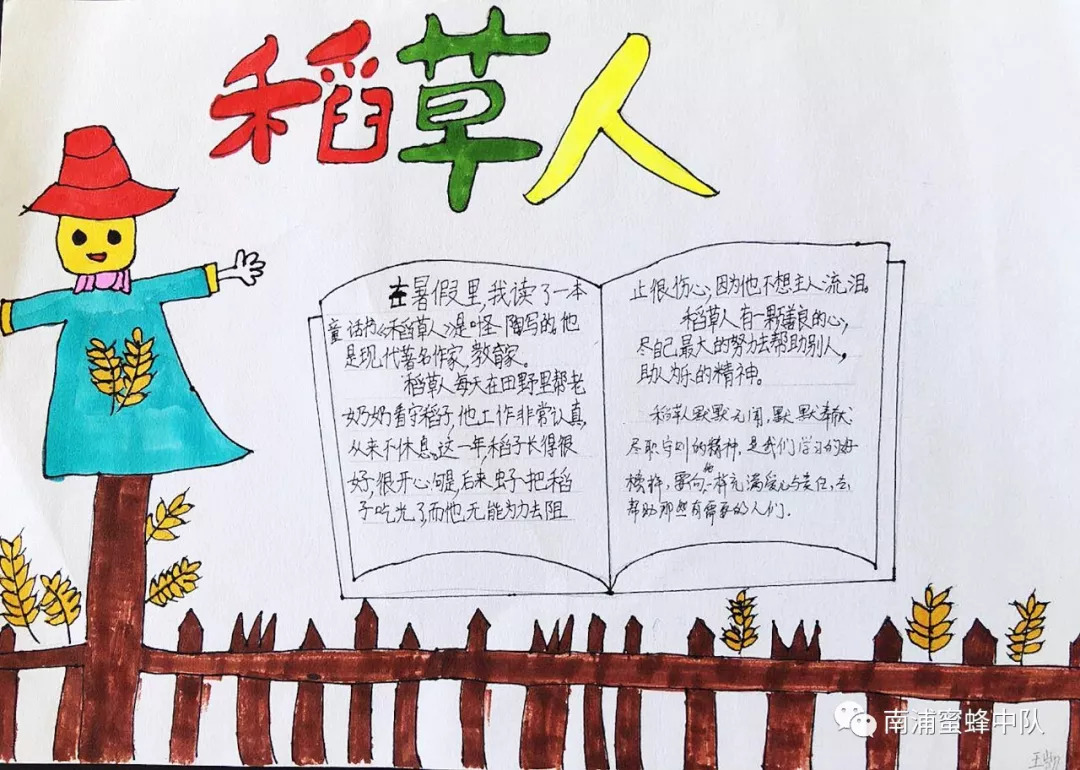 稻草人
在暑假里,我读了一本
童话书《稻草人》是叶圣陶写的。他
是现代著名作家,教育家。
稻草人每天在田野里帮老
奶奶看守稻子,他工作非常认真,
从来不休息。这一年,稻子长得很
好,很开心,可是,后来虫子把稻
子吃光了,而他无能为力去阻
止很伤心,因为他不想主人流泪。
稻草人有一颗善良的心,
尽自己最大的努力去帮助别人,
助人为乐的精神。
稻草人默默无闻,默默奉献,
尽职守则的精神,是我们学习的好
榜样,要向他一样充满爱心与责任,去
帮助那些有需要的人们.
南浦蜜蜂中队